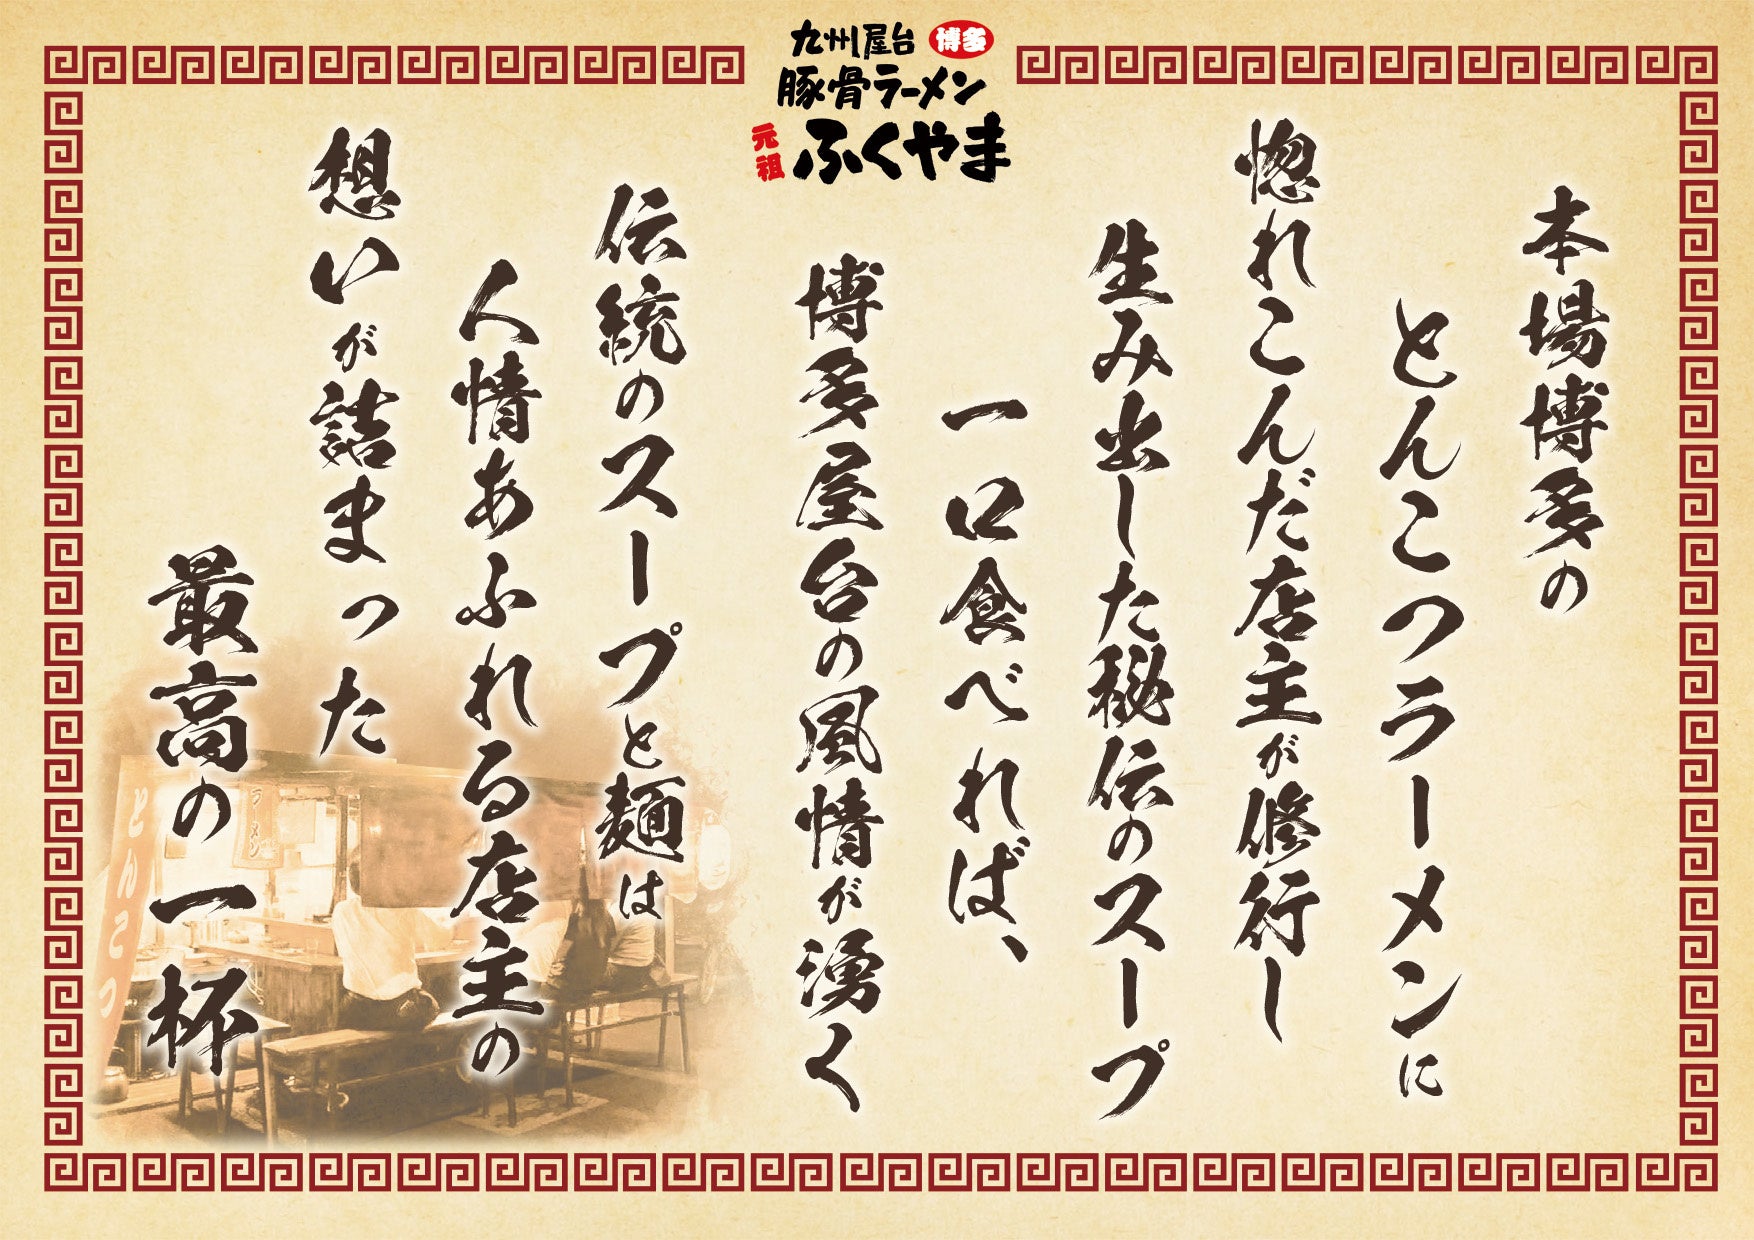 九州屋台 博多
豚骨ラーメン
元祖 ふくやま
本場博多の
とんこつラーメンに
惚れこんだ店主が修行し
生み出した秘伝のスープ
一口食べれば、
博多屋台の風情が湧く
伝統のスープと麺は
人情あふれる店主の
想いが詰まった
最高の一杯
とんこつ
ラーメン